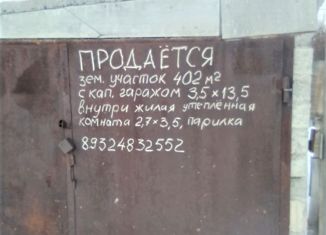 ПРОДАЁТСЯ
зем. участок 402 м²
с кап. гаражом 3,5×13,5
внутри жилая утеплённая
комната 2,7×3,5, парилка
89324832552